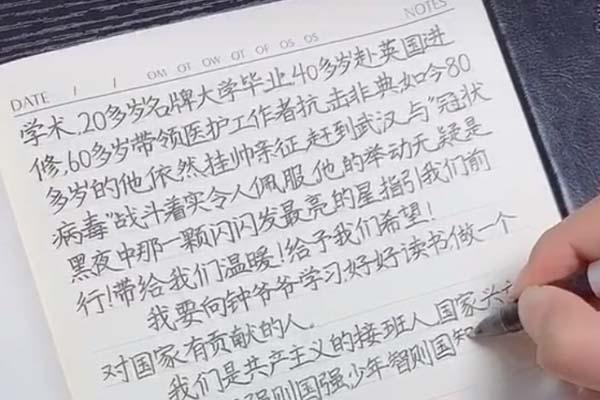 NOTES
DATE / / OM OT OW OT OF OS OS
学术,20多岁名牌大学毕业,40多岁赴英国进
修,60多岁带领医护工作者抗击非典,如今80
多岁的他,依然挂帅亲征,赶到武汉,与"冠状
病毒"战斗着实令人佩服,他的举动无疑是
黑夜中那一颗闪闪发最亮的星指引我们前
行!带给我们温暖!给予我们希望!
我要向钟爷爷学习,好好读书,做一个
对国家有贡献的人。
我们是共产主义的接班人,国家兴
强则国强,少年智则国知